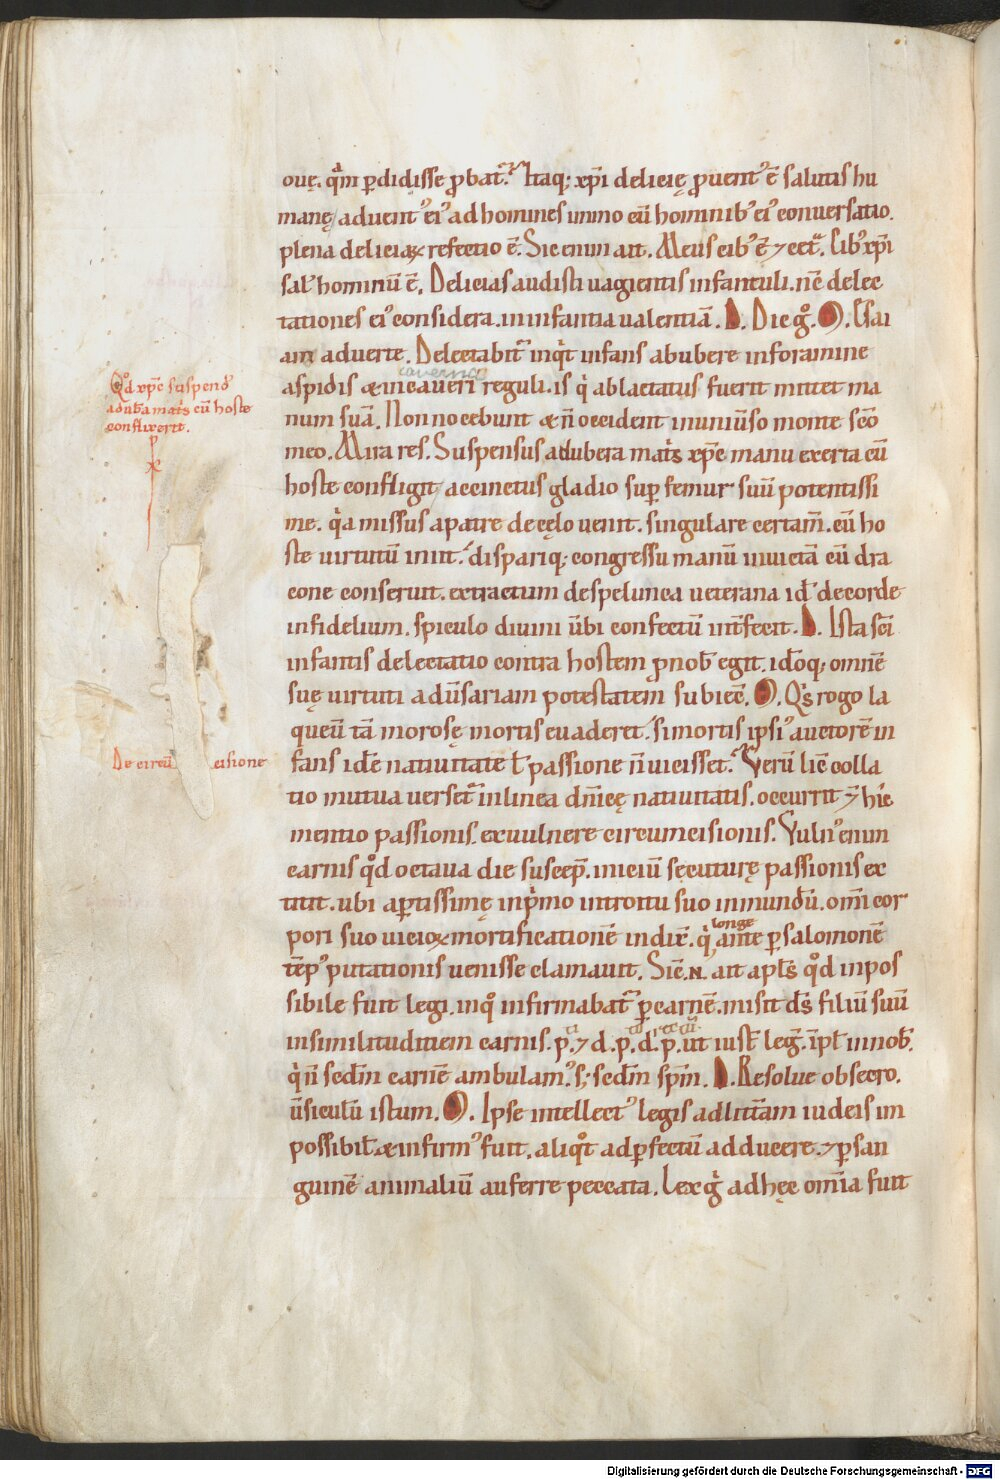 ouę. qͣm ꝑdidisse ꝓbat᷑. Itaq; xp̄i delicię ꝓuent᷒ ē salutis hu
manę aduent᷒ ei᷒ ad homines immo cū hominib᷒ ei᷒ conuersatio.
plena deliciaꝝ refectio ē. Sic enim ait. Meus cib᷒ ē ⁊ cet᷑a. Cib᷒ xp̄i
sal᷒ hominū ē. Delicias audisti uagientis infantuli. nē delec
tationes ei᷒ considera. in infantia ualentiā. D. Dic gͦ. O. Esai
am aduerte. Delectabit᷑ inqͥt infans ab ubere in foramine
aspidis & in caueri reguli. is qͥ ablactatus fuerit mittet ma
cauerna
num suā. Non nocebunt & n̄ occident in uniūso monte sc̄o
meo. Mira res. Suspensus ad ubera matͥs xp̄c manu exerta cū
hoste confligit accinctus gladio suꝑ femur suū potentissi
me. qͥa missus a patre de cęlo uenit. singulare certam̄. cū ho
ste uirtutū iniit. dispariq; congressu manū inuictā cū dra
cone conseruit. extractum de spelunca ueterana id᷑ de corde
infidelium. spiculo diuini ūbi confectū int᷑fecit. D. Ista sc̄i
infantis delectatio contra hostem ꝓ nob᷒ egit. idoq; omnē
suę uirtuti adūsariam potestatem subiec̄. O. Qͥs rogo la
queū tā morosę mortis euaderet. si mortis ipsi᷒ auctorē in
fans id̄e natiuitate ł passione n̄ uicisset. Verū lic̄ colla
tio mutua verset᷑ in linea dn̄icę natiuitatis. occurrit ⁊ hic
mentio passionis. ex uulnere circumcisionis. Vuln᷒ enim
carnis qͦd octaua die suscep̄. iniciū sęcuturę passionis ex
titit. ubi aꝑtissimę in pͥmo introitu suo in mundū. om̄i cor
pori suo uicioꝝ mortificationē indix̄. qͥ longe ante ꝑ salomonē
tēp᷒ putationis uenisse clamauit. Sic̄ .N. ait apl̄s qͦd inpos
sibile fuit legi. in qͦ infirmabat᷑ ꝑ carnē. misit d̄s filiū suū
in similitudinem carnis. p. ⁊ d. p. d. p. ut iust̄ leg᷑. īpl᷑ in nob᷒.
qͥ n̄ sedm̄ carnē ambulam᷒. s; sedm̄ sp̄m. D. Resolue obsecro.
ūsiculū istum. O. Ipse intellect᷒ legis ad litt᷑am iudeis im
possibił & infirm᷒ fuit. aliqͦt ad ꝑfectū adducere. ⁊ ꝑ san
guinē animaliū auferre peccata. Lex gͦ ad hęc om̄ia fuit
Qͦd xp̄c suspensꝰ
ad ub̄a matͥs cū hoste
conflixerit.
De circū cisione
Digitalisierung gefördert durch die Deutsche Forschungsgemeinschaft - DFG